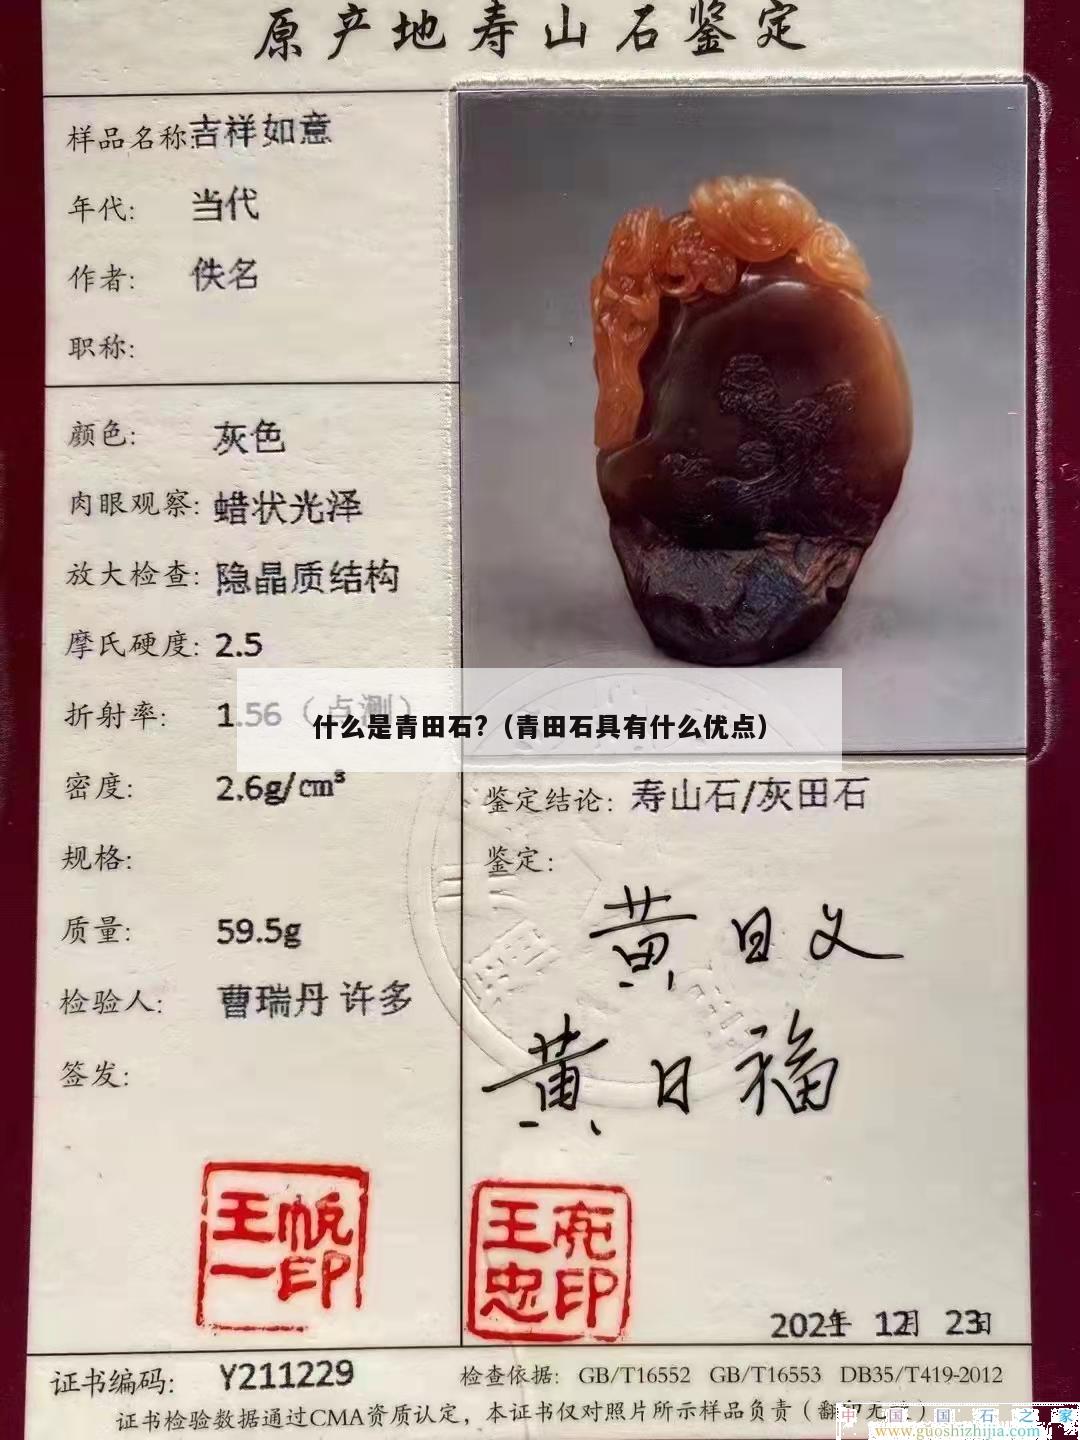 原产地寿山石鉴定
样品名称:吉祥如意
年代: 当代
作者: 佚名
职称:
颜色: 灰色
肉眼观察: 蜡状光泽
放大检查: 隐晶质结构
摩氏硬度: 2.5
折射率: 1.56（点测）
什么是青田石?（青田石具有什么优点）
密度: 2.6g/cm³
规格:
质量: 59.5g
检验人: 曹瑞丹 许多
签发:
鉴定结论: 寿山石/灰田石
鉴定:
黄日文
黄日福
王帆
一印
王亮
忠印
2021年 12月 23日
证书编码: Y211229
检查依据: GB/T16552 GB/T16553 DB35/T419-2012
证书检验数据通过CMA资质认定，本证书仅对照片所示样品负责（翻印无
中国国石之家
www.guoshizhijia.com